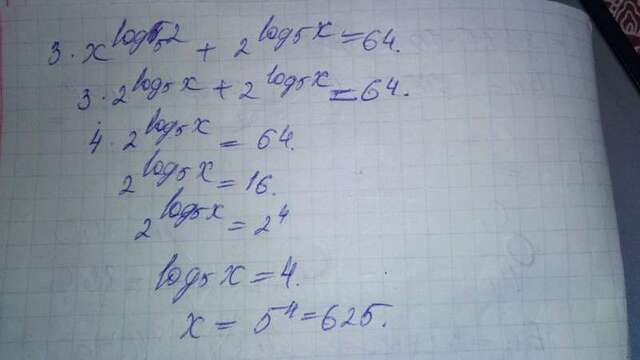 3 · x^log₅2 + 2^log₅x = 64.
3 · 2^log₅x + 2^log₅x = 64.
4 · 2^log₅x = 64.
2^log₅x = 16.
2^log₅x = 2⁴
log₅x = 4.
x = 5⁴ = 625.